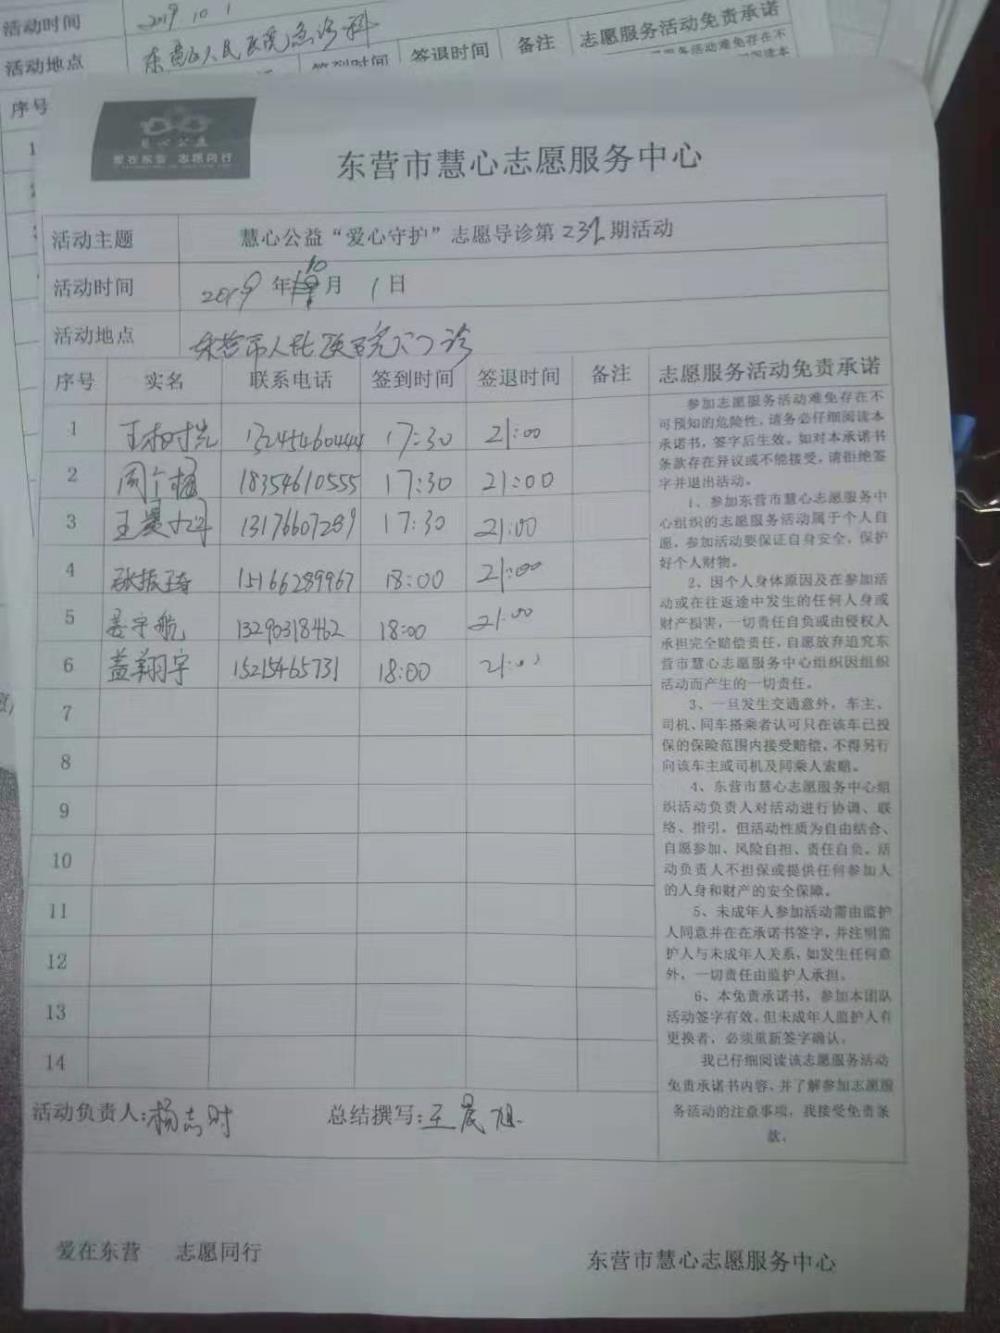 活动时间 2019 10 1
活动地点 东营区人民医院急诊科
签到时间 签退时间 备注 志愿服务活动免责承诺
序号
慧心公益
爱在东营 志愿同行
东营市慧心志愿服务中心
活动主题 慧心公益“爱心守护”志愿导诊第 期活动
活动时间 2019年10月1日
活动地点 东营市人民医院门诊
序号 实名 联系电话 签到时间 签退时间 备注 志愿服务活动免责承诺
1 13245460444 17:30 21:00
2 18354610555 17:30 21:00
3 13176607289 17:30 21:00
4 张振 15166289967 18:00 21:00
5 姜宇航 13290318462 18:00 21:00
6 盖翔宇 15215465731 18:00 21:00
7
8
9
10
11
12
13
14
参加志愿服务活动难免存在不
可预知的危险性，请务必仔细阅读本
承诺书，签字后生效。如对本承诺书
条款存在异议或不能接受，请拒绝签
字并退出活动。
1、参加东营市慧心志愿服务中
心组织的志愿服务活动属于个人自
愿，参加活动要保证自身安全，保护
好个人财物。
2、因个人身体原因及在参加活
动或在往返途中发生的任何人身或
财产损害，一切责任自负或由侵权人
承担完全赔偿责任，自愿放弃追究东
营市慧心志愿服务中心组织因组织
活动而产生的一切责任。
3、一旦发生交通意外，车主、
司机、同车搭乘者认可只在该车已投
保的保险范围内接受赔偿，不得另行
向该车主或司机及同乘人索赔。
4、东营市慧心志愿服务中心组
织活动负责人对活动进行协调、联
络、指引，但活动性质为自由结合、
自愿参加、风险自担、责任自负。活
动负责人不担保或提供任何参加人
的人身和财产的安全保障。
5、未成年人参加活动需由监护
人同意并在在承诺书签字，并注明监
护人与未成年人关系，如发生任何意
外，一切责任由监护人承担。
6、本免责承诺书，参加本团队
活动签字有效，但未成年人监护人有
更换者，必须重新签字确认。
我已仔细阅读该志愿服务活动
免责承诺书内容，并了解参加志愿服
务活动的注意事项，我接受免责条
款。
活动负责人:杨志时 总结撰写:王晨旭
爱在东营 志愿同行 东营市慧心志愿服务中心